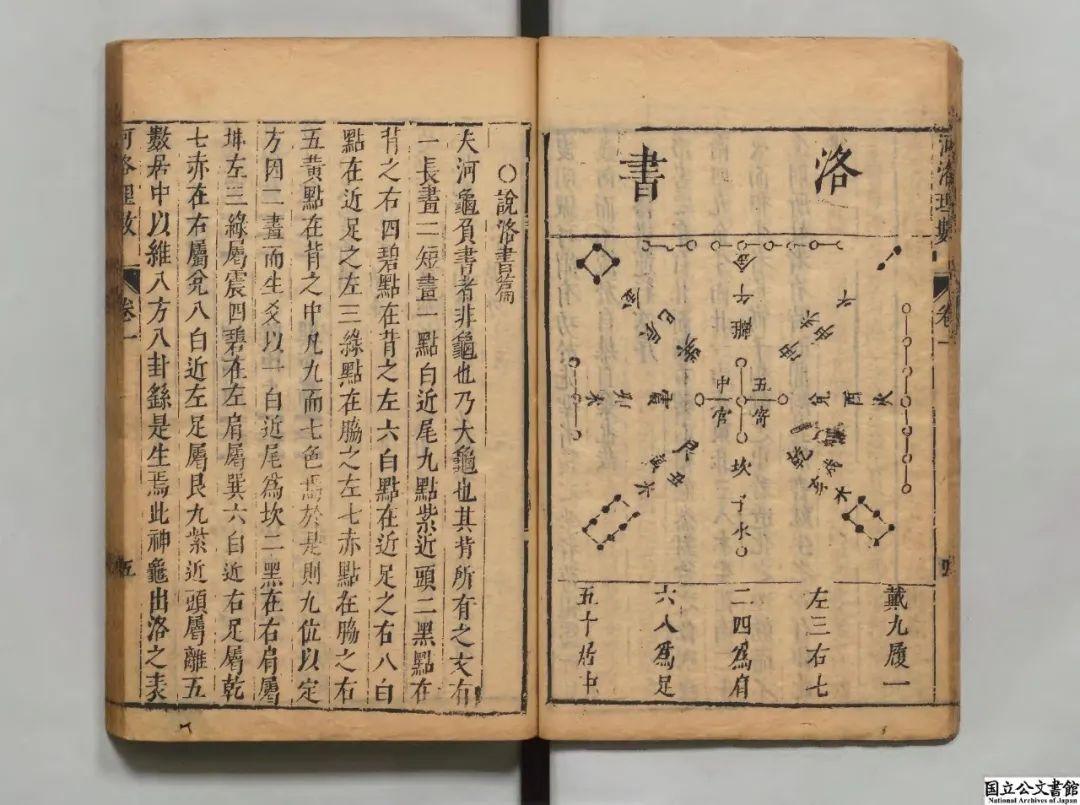 河洛理數 卷一 四
洛書
金午離
坤申未
巽巳辰
兌酉火
五寄
中宮
震卯
艮丑寅
乾
亥
坎子水
戴九履一
左三右七
二四為肩
六八為足
五十居中
○說洛書篇
夫河龜負書者非龜也乃大龜也其背所有之文有
一長畫二短畫一點白近尾九點紫近頭二黑點在
背之右四碧點在背之左六白點在近足之右八白
點在近足之左三綠點在脇之左七赤點在脇之右
五黃點在背之中凡九而七色焉於是則九位以定
方因二畫而生爻以一白近尾爲坎二黑在右肩屬
坤左三綠屬震四碧在左肩屬巽六白近右足屬乾
七赤在右屬兌八白近左足屬艮九紫近頭屬離五
數居中以維八方八卦繇是生焉此神龜出洛之表
河洛理數 卷一 五
国立公文書館
National Archives of Japan